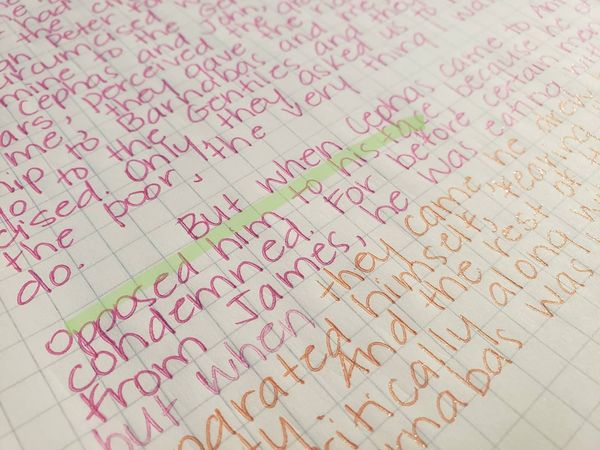 that
Peter for
circumcised
mine to the
Cephas and
ars, perceived the
me, they gave the
ip to Barnabas and
to the Gentiles and they
cised. Only, they asked us to
the poor, the very thing I
do.
But when Cephas came to
opposed him to his face because he
condemned. For before certain
From James, he was eating
but when they came he drew
parated himself, fearing
And the rest of
critically along
rnabas was